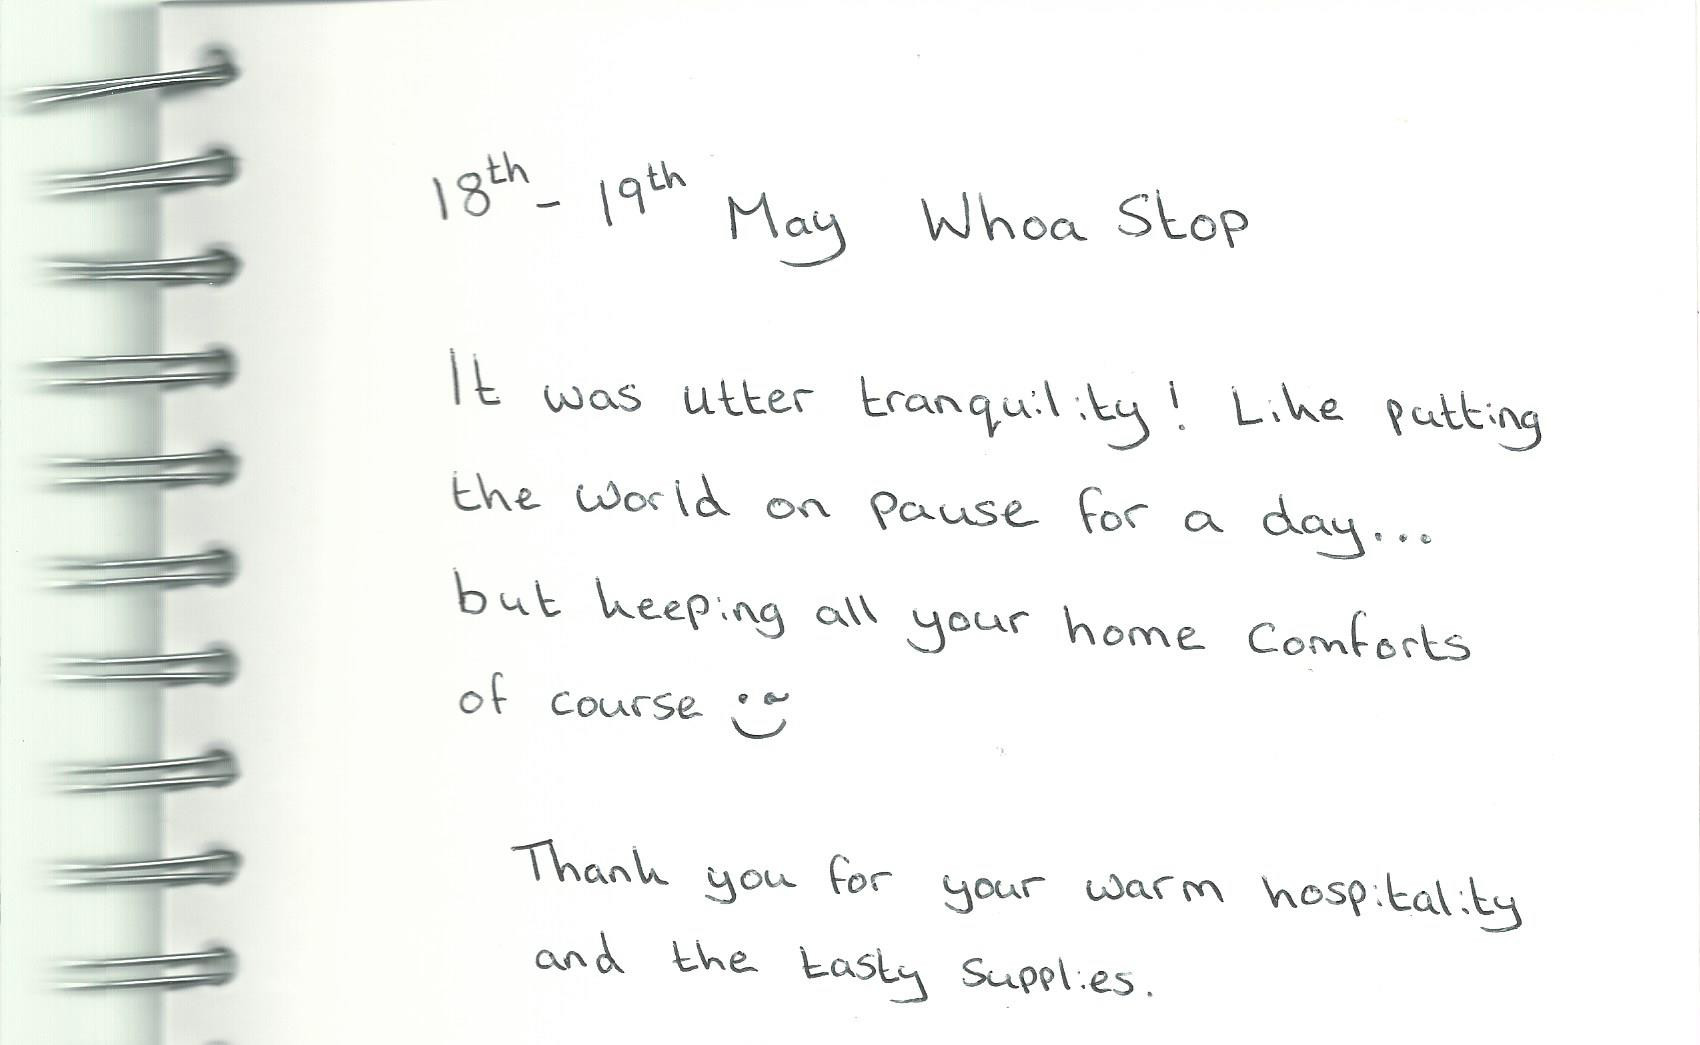 18th - 19th May Whoa Stop
It was utter tranquility! Like putting
the world on pause for a day...
but keeping all your home comforts
of course
Thank you for your warm hospitality
and the tasty supplies.